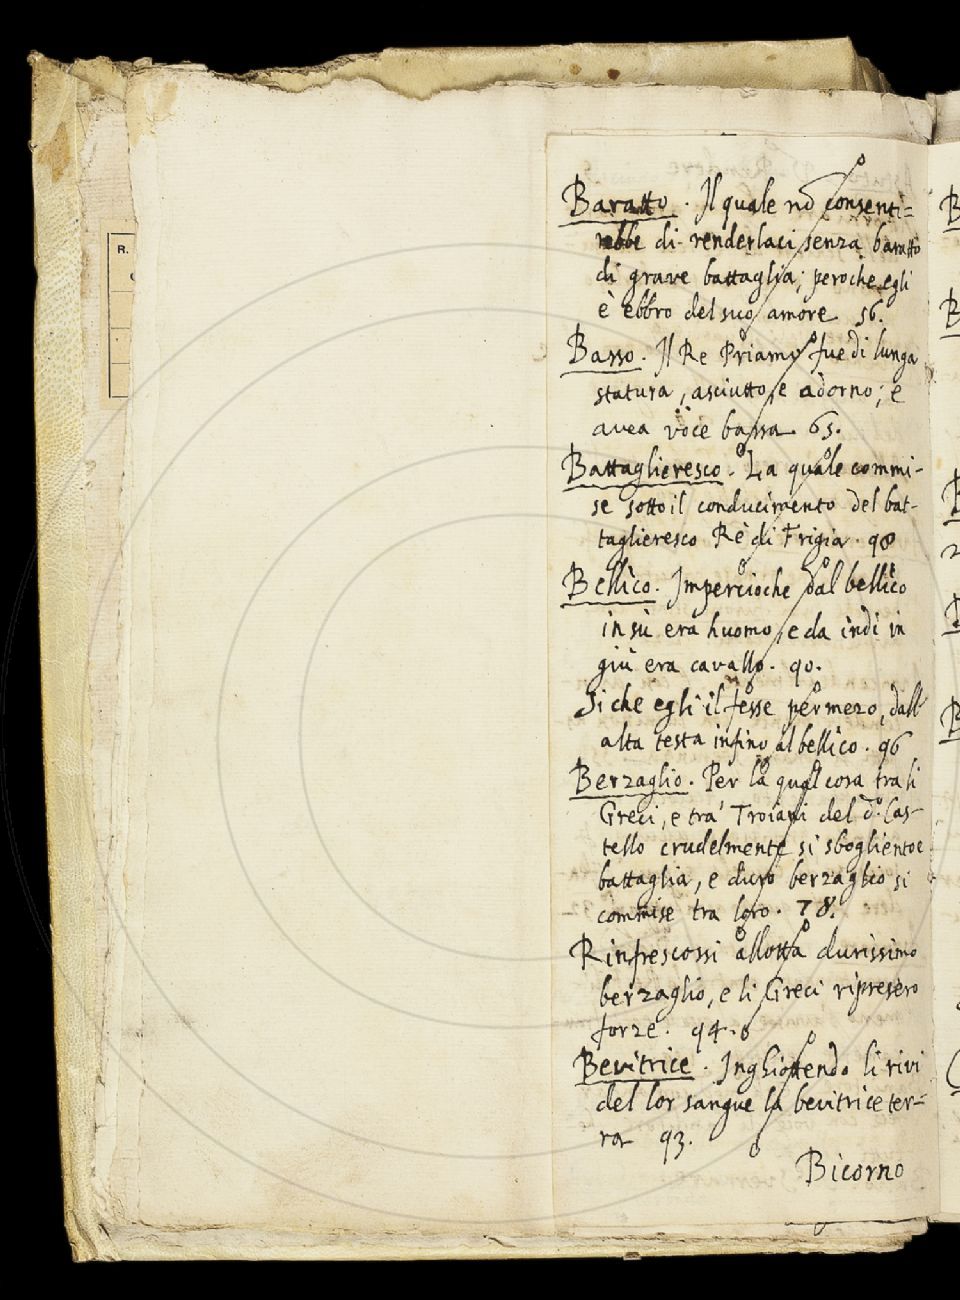 R.
Baratto. Il quale nō consenti=
rebbe di renderlaci senza baratto
di grave battaglia; peroche egli
è ebbro del suo amore 56.
Basso. Il Re Priamo fue di lunga
statura, asciutto, e adorno; e
avea voce bassa. 65.
Battaglieresco. La quale commi-
se sotto il conducimento del bat-
taglieresco Rè di Frigia. 98
Bellico. Impercioche dal bellico
in sù era huomo, e da indi in
giù era cavallo. 90.
Si che egli il fesse per mezo, dall'
alta testa infino al bellico. 96
Berzaglio. Per la qual cosa tra li
Greci, e tra' Troiani del d.° Cas-
tello crudelmente si sboglientoe
battaglia, e duro berzaglio si
commise tra loro. 78.
Rinfrescossi allotta durissimo
berzaglio, e li Greci ripresero
forze. 94.
Bevitrice. Inghiottendo li rivi
del lor sangue la bevitrice ter-
ra 93.
Bicorno